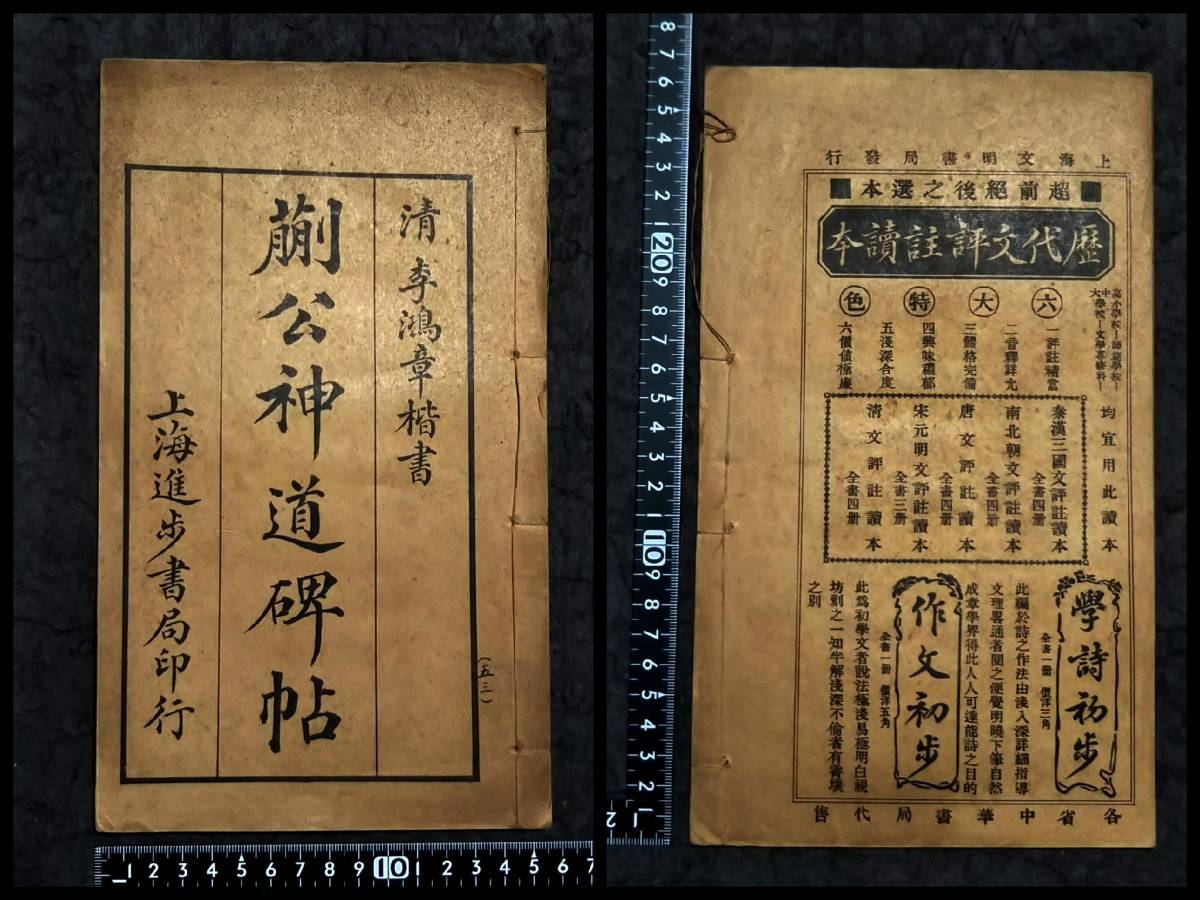 清 李鴻章楷書
蒯公神道碑帖
上海進步書局印行
(五三)
10
1 2 3 4 5 6 7 8 9 10 1 2 3 4 5 6 7
上海文明書局發行
超前絕後之選本
歷代文評註讀本
六大特色
高小學校—師範學校—
中學校—文學專修科—
大
均宜用此讀本
一評註精當
二音釋詳允
三體格完備
四興味穠郁
五淺深合度
六價值極廉
秦漢三國文評註讀本
全書四册
南北朝文評註讀本
全書四册
唐文評註讀本
全書四册
宋元明文評註讀本
全書三册
清文評註讀本
全書四册
學詩初步
全書一册 價洋三角
此編於詩之作法由淺入深詳細指導
文理畧通者閱之便覺明曉下筆自然
成章學界得此人人可達能詩之目的
作文初步
全書一册 價洋五角
此爲初學文者說法極淺易極明白視
坊刻之一知半解淺深不倫者有霄壤
之別
各省中華書局代售